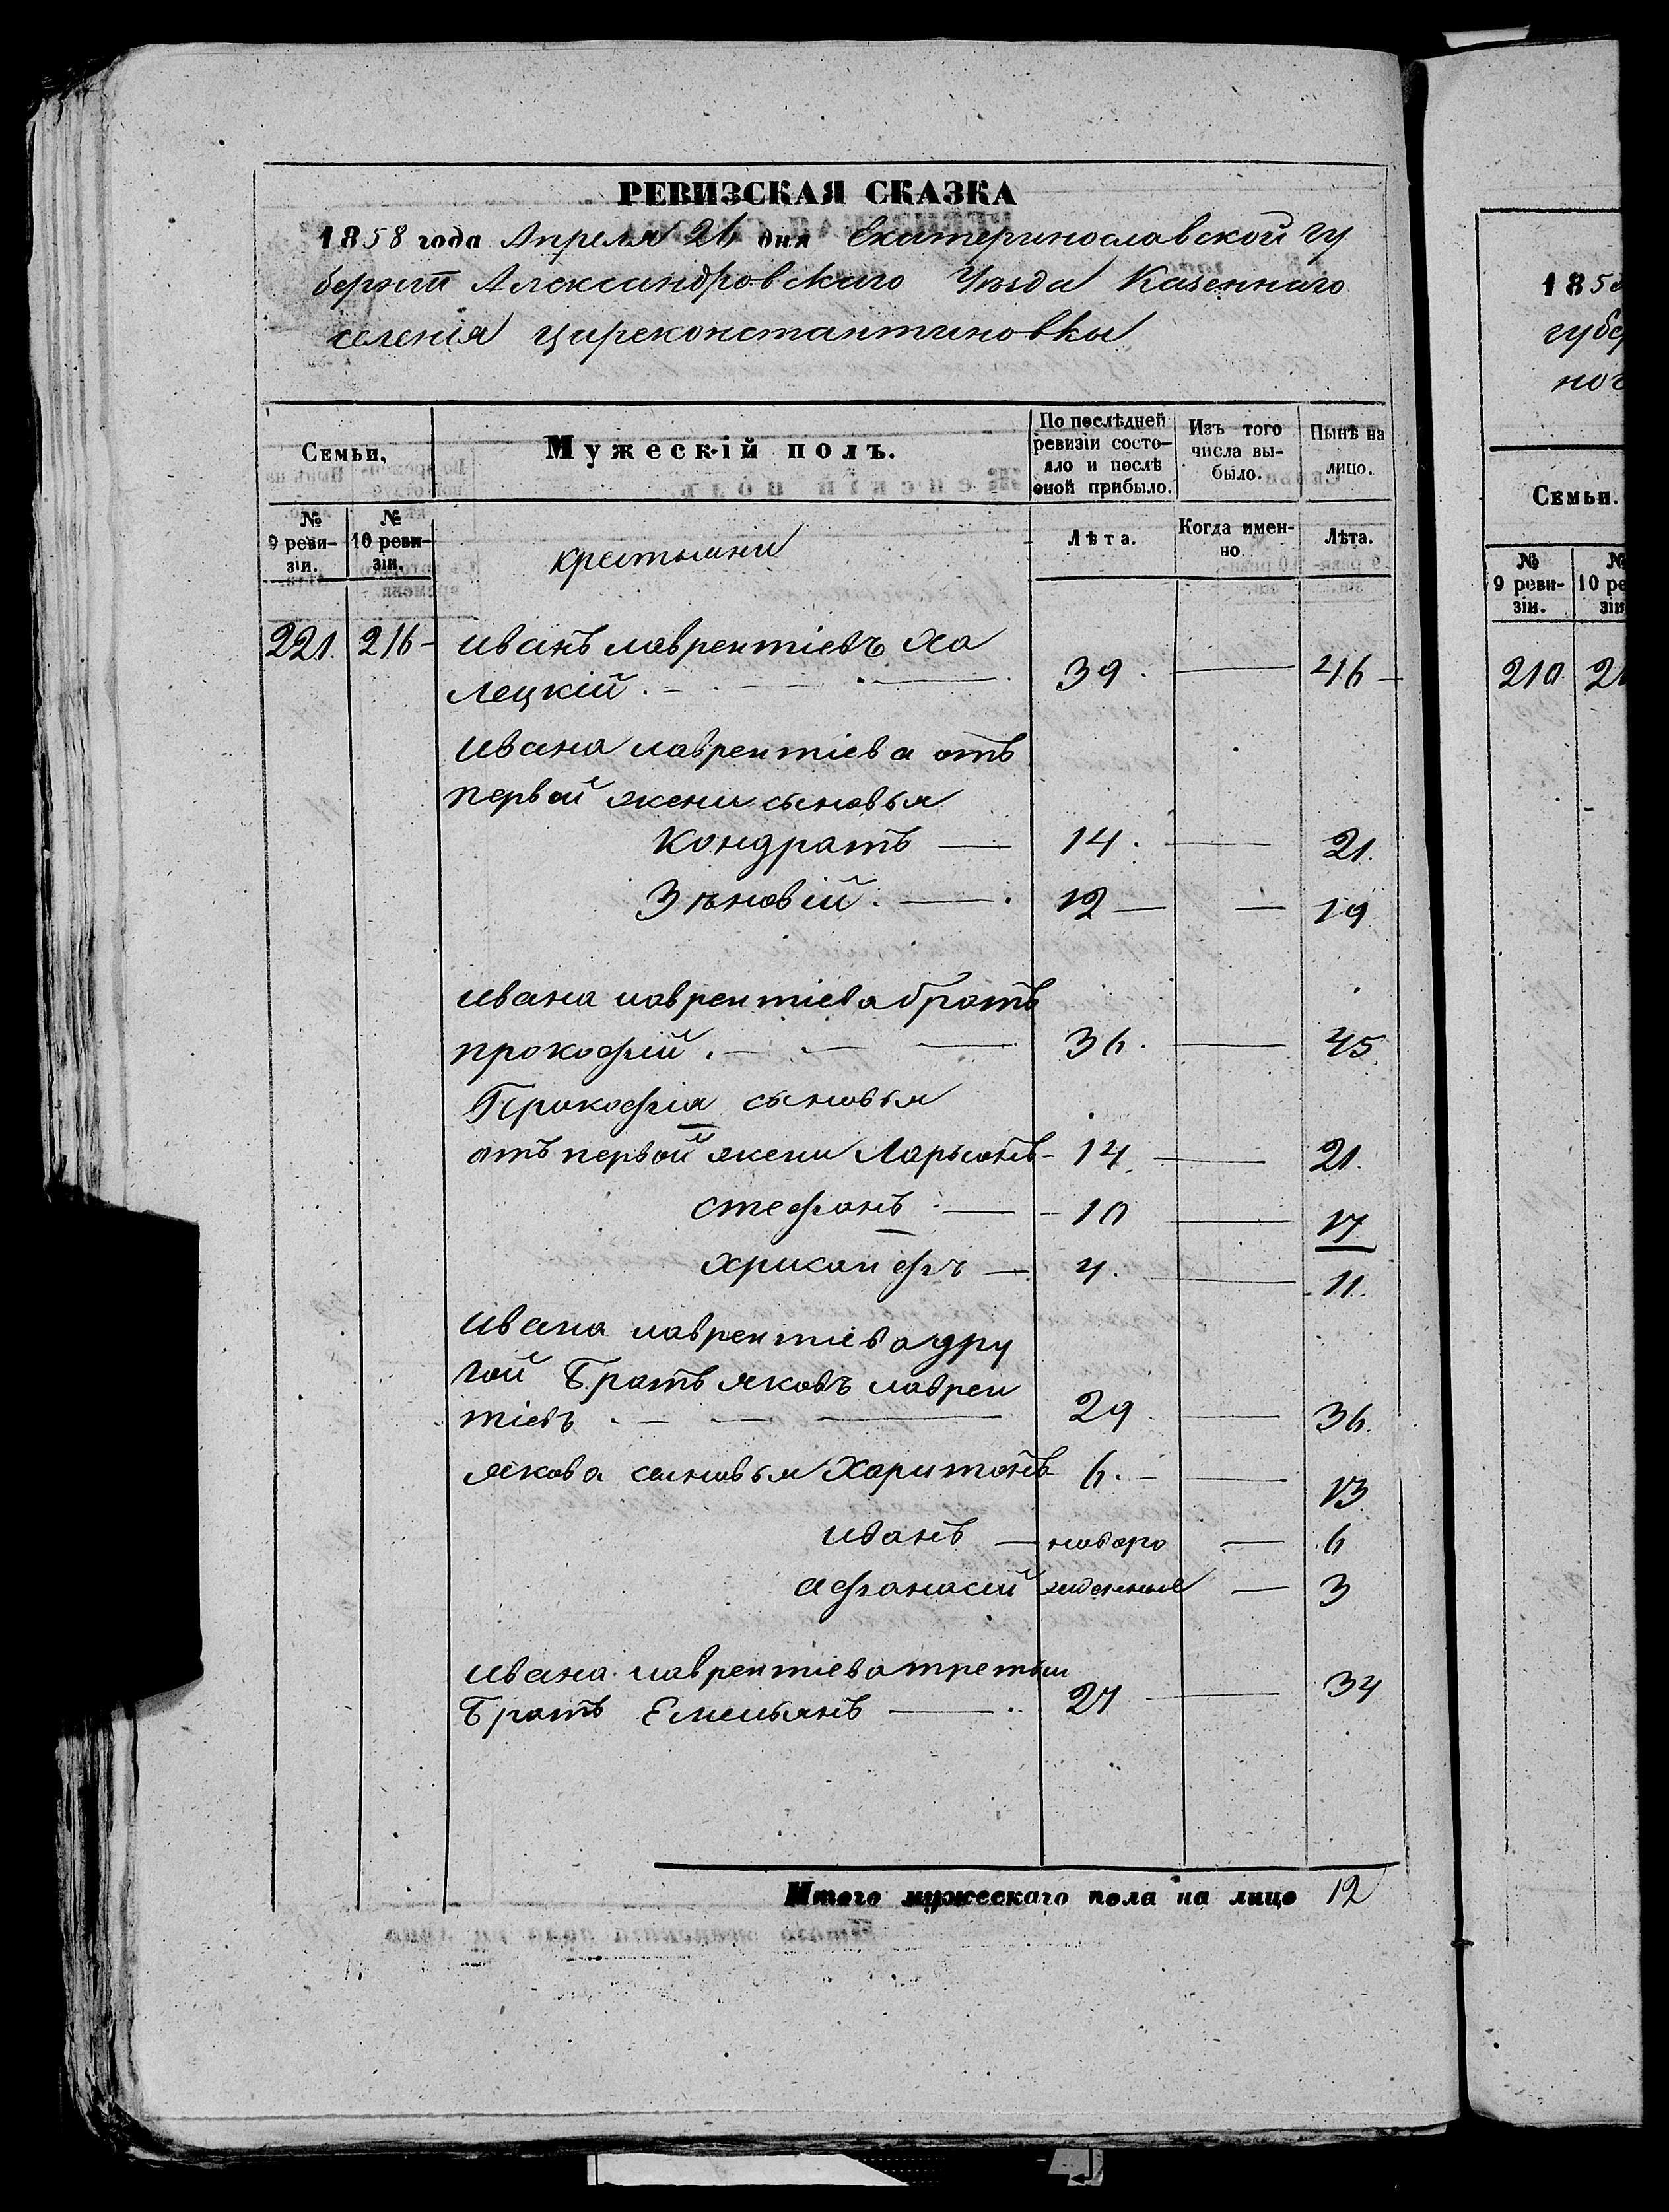 РЕВИЗСКАЯ СКАЗКА
1858 года Апреля 26 дня Екатеринославской гу
берніи Александровскаго Уѣзда Казеннаго
селенія Цареконстантиновки
Семьи,
Мужескій полъ.
По послѣдней ревизіи состояло и послѣ оной прибыло.
Изъ того числа выбыло.
Нынѣ на лицо.
№ 9 ревизіи.
№ 10 ревизіи.
крестьяни
Лѣта.
Когда именно.
Лѣта.
221. 216 иванъ лаврентіевъ Ха
лецкій. 39. 46
ивана лаврентіева отъ
первой жени сыновья
Кондратъ 14. 21.
Зѣновій. 12 19
ивана лаврентіева братъ
прокофій. 36. 45.
Прокофія сыновья
отъ первой жени Ларыонъ 14. 21.
стефанъ 10 17
хрисанфъ 4. 11.
ивана лаврентіева дру
гой Братъ яковъ лаврен
тіевъ 29 36.
якова сыновья Харитонъ 6. 13
иванъ новоро 6
афанасій жденные 3
ивана лаврентіева третьи
Братъ Емельянъ 27 34
Итого мужескаго пола на лицо 12
185
губе
ног
Семьи.
№ 9 ревизіи.
№ 10 ре
зіи
210. 2